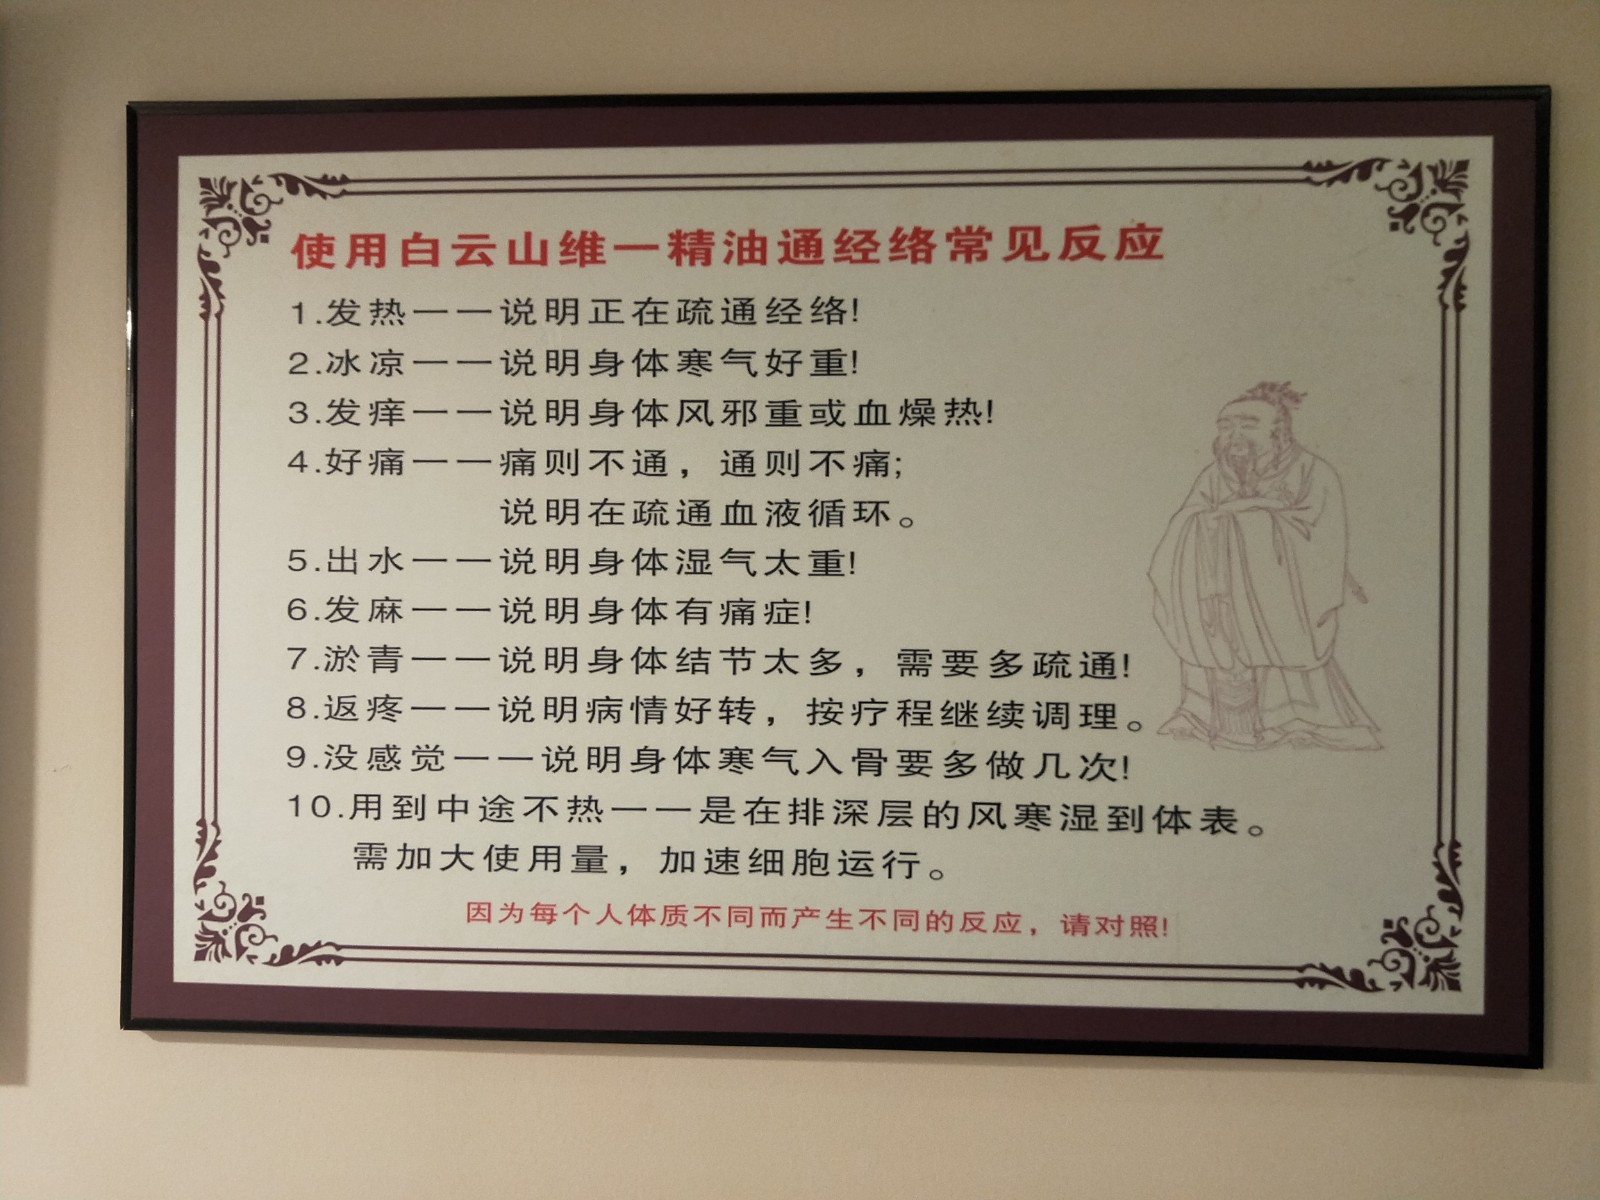 使用白云山维一精油通经络常见反应
1.发热一一说明正在疏通经络!
2.冰凉一一说明身体寒气好重!
3.发痒一一说明身体风邪重或血燥热!
4.好痛一一痛则不通，通则不痛;
说明在疏通血液循环。
5.出水一一说明身体湿气太重!
6.发麻一一说明身体有痛症!
7.淤青一一说明身体结节太多，需要多疏通!
8.返疼一一说明病情好转，按疗程继续调理。
9.没感觉一一说明身体寒气入骨要多做几次!
10.用到中途不热一一是在排深层的风寒湿到体表。
需加大使用量，加速细胞运行。
因为每个人体质不同而产生不同的反应，请对照!